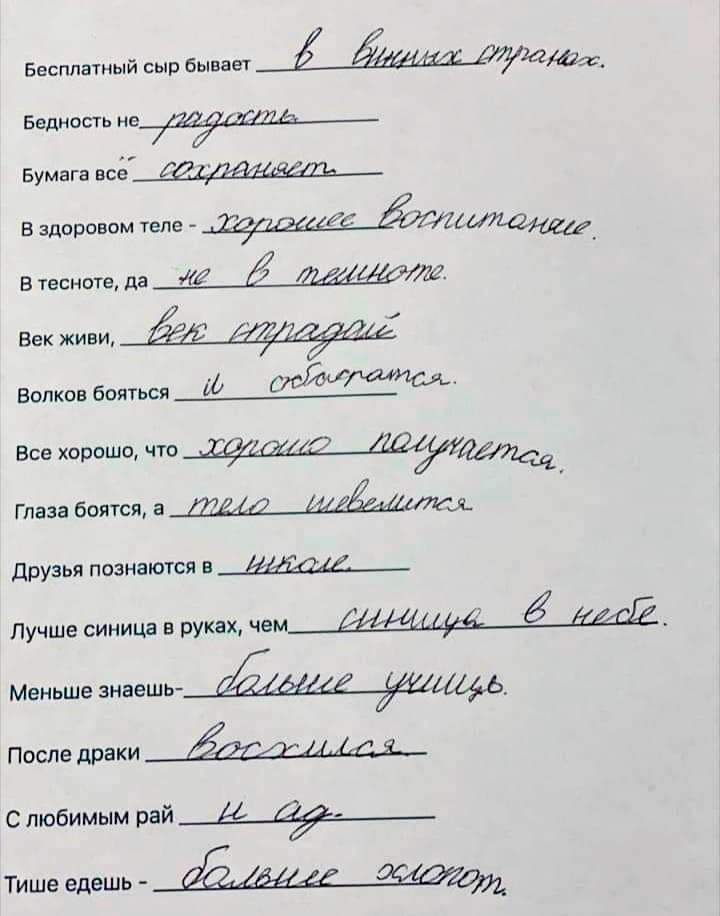 Бесплатный сыр бывает в винных странах.
Бедность не радость
Бумага всё сохраняет
В здоровом теле - хорошее воспитание.
В тесноте, да не в темноте.
Век живи, век страдай
Волков бояться и обосратся.
Все хорошо, что хорошо получается.
Глаза боятся, а тело шевелится
Друзья познаются в школе.
Лучше синица в руках, чем синица в небе.
Меньше знаешь- больше учишь.
После драки
С любимым рай и ад.
Тише едешь - больше хлопот.